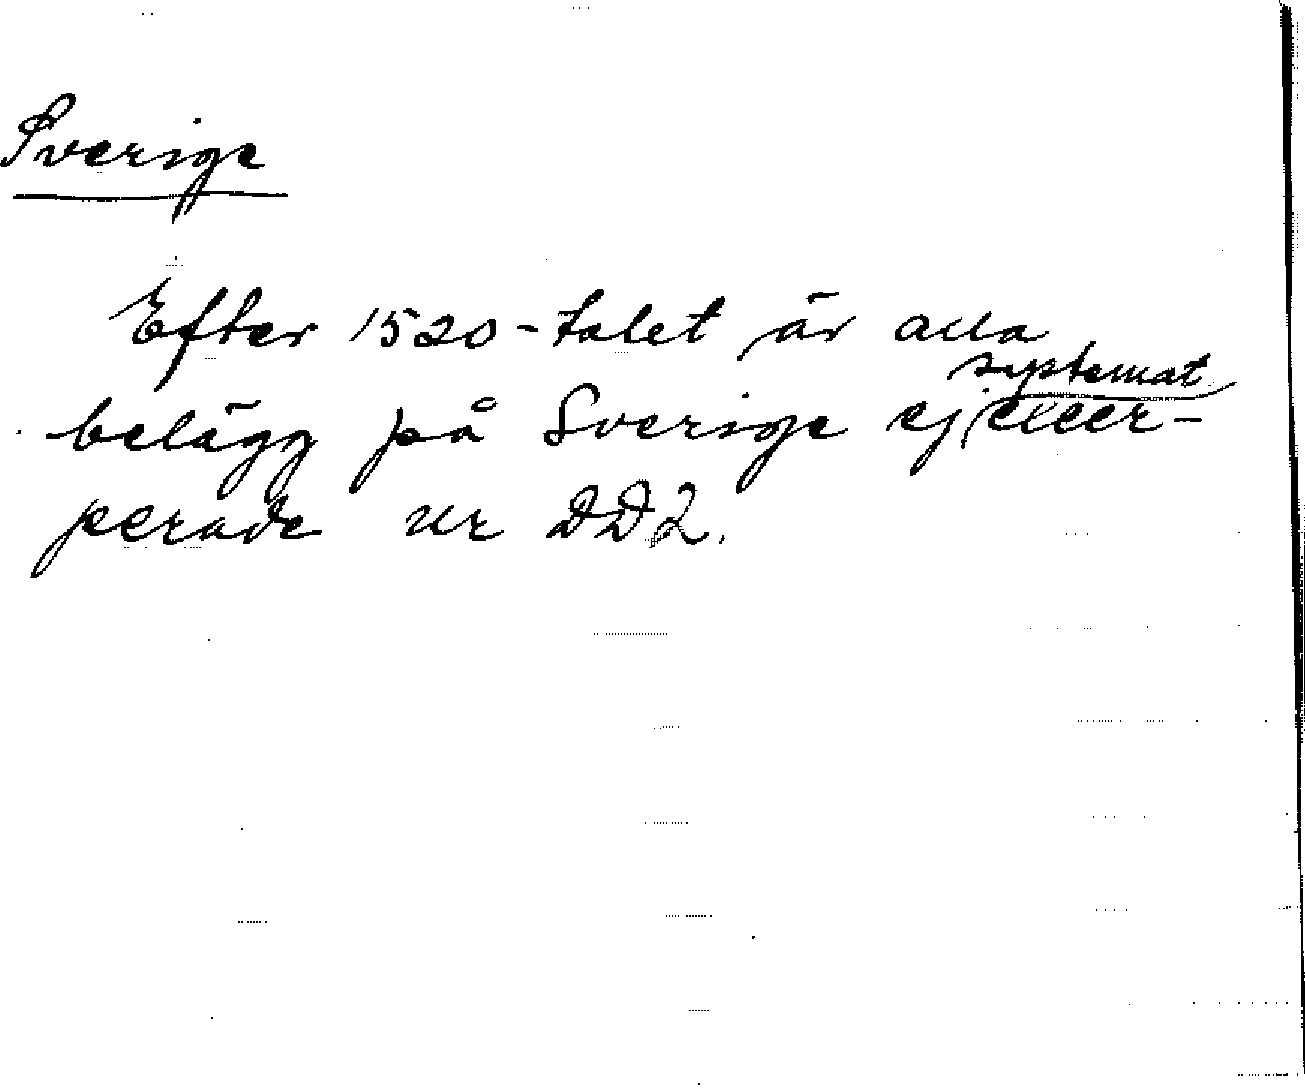 Sverige
Efter 1520-talet är alla
systemat.
belägg på Sverige ej excer-
perade ur DD2.